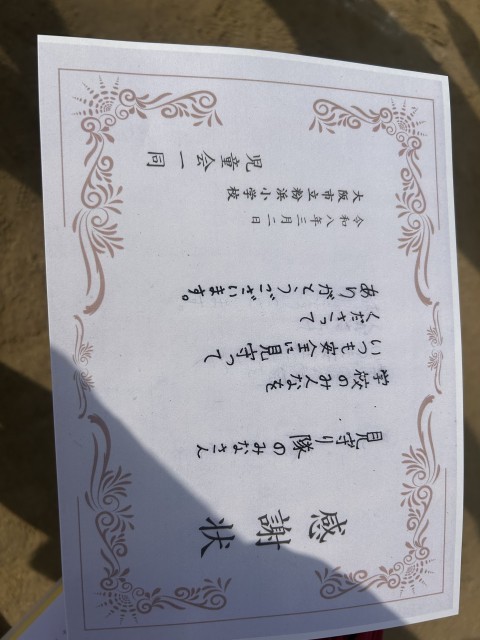 感謝状
見守り隊のみなさん
学校のみんなを
いつも安全に見守って
くださって
ありがとうございます。
令和八年三月二日
大阪市立粉浜小学校
児童会一同